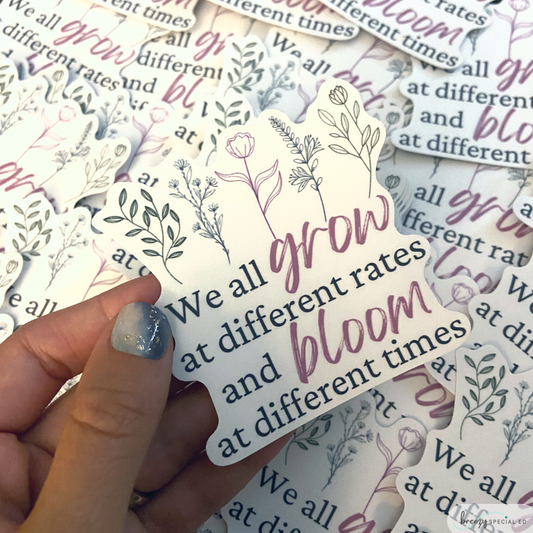 We all grow
at different rates
and bloom
at different times
breezy SPECIAL ED